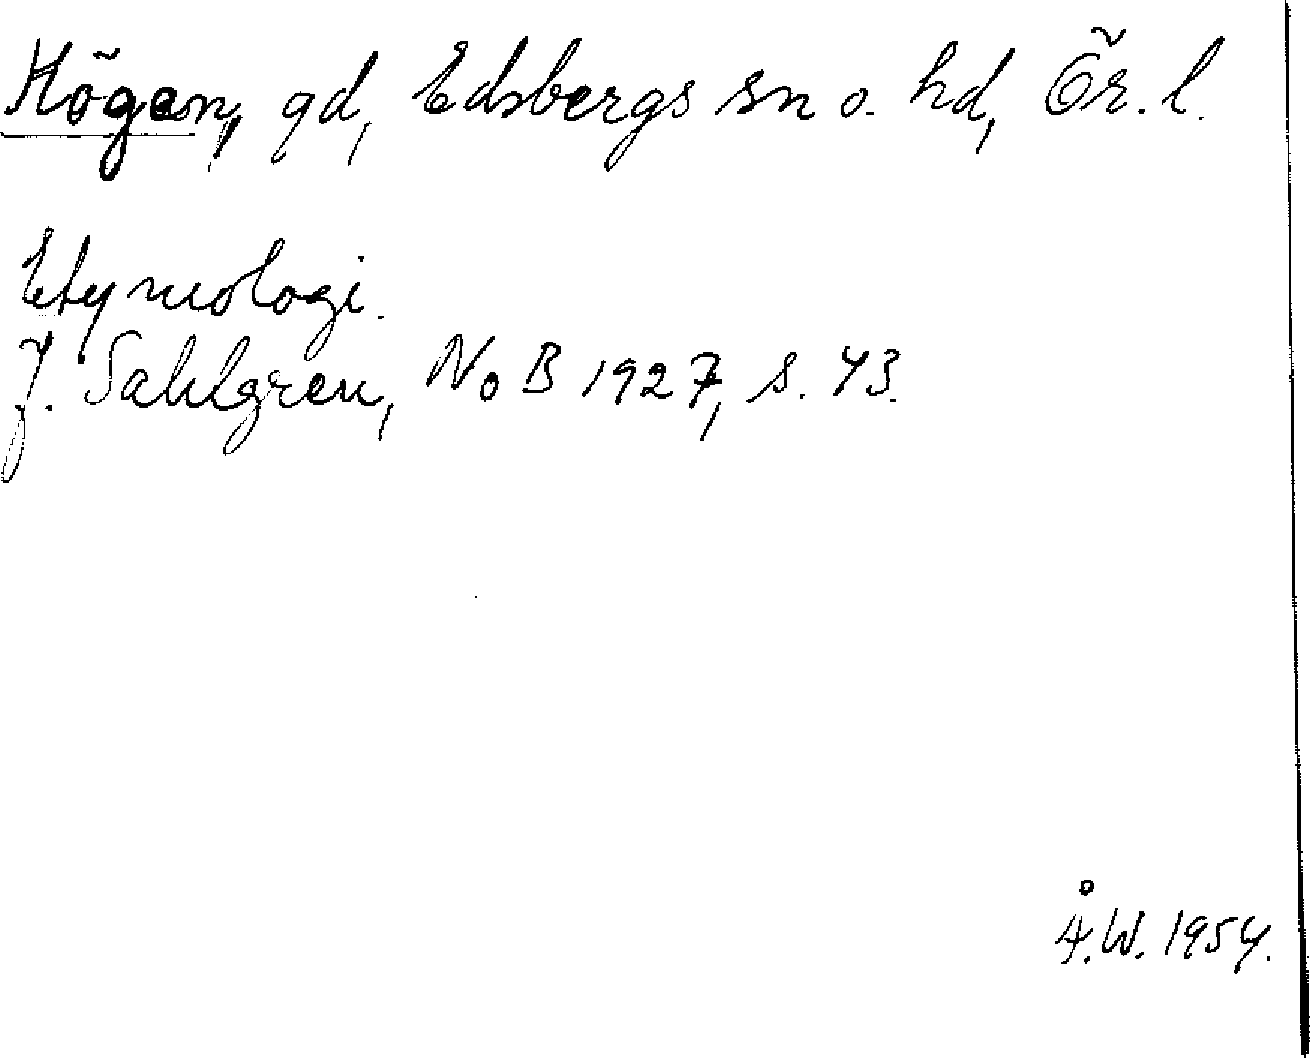 Högen, gd, Edsbergs sn o. hd, Ör. l.
Etymologi.
J. Sahlgren, NoB 1927, s. 43.
Å.W. 1954.